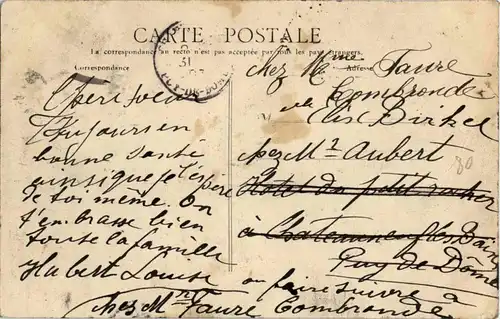 CARTE POSTALE
La correspondance au recto n'est pas acceptée par tous les pays étrangers.
Correspondance
Adresse
PUY-DE-DOME
31
Toujours en
bonne santé
ainsi que je l'espère
de toi même. On
t'embrasse bien
toute la famille
Hubert Louise
chez Mme Faure
Combronde
chez Mr Aubert
Hotel du petit
à Chateauneuf les Bains
Puy de Dôme
ou faire suivre à
chez Mr Faure Combronde
80